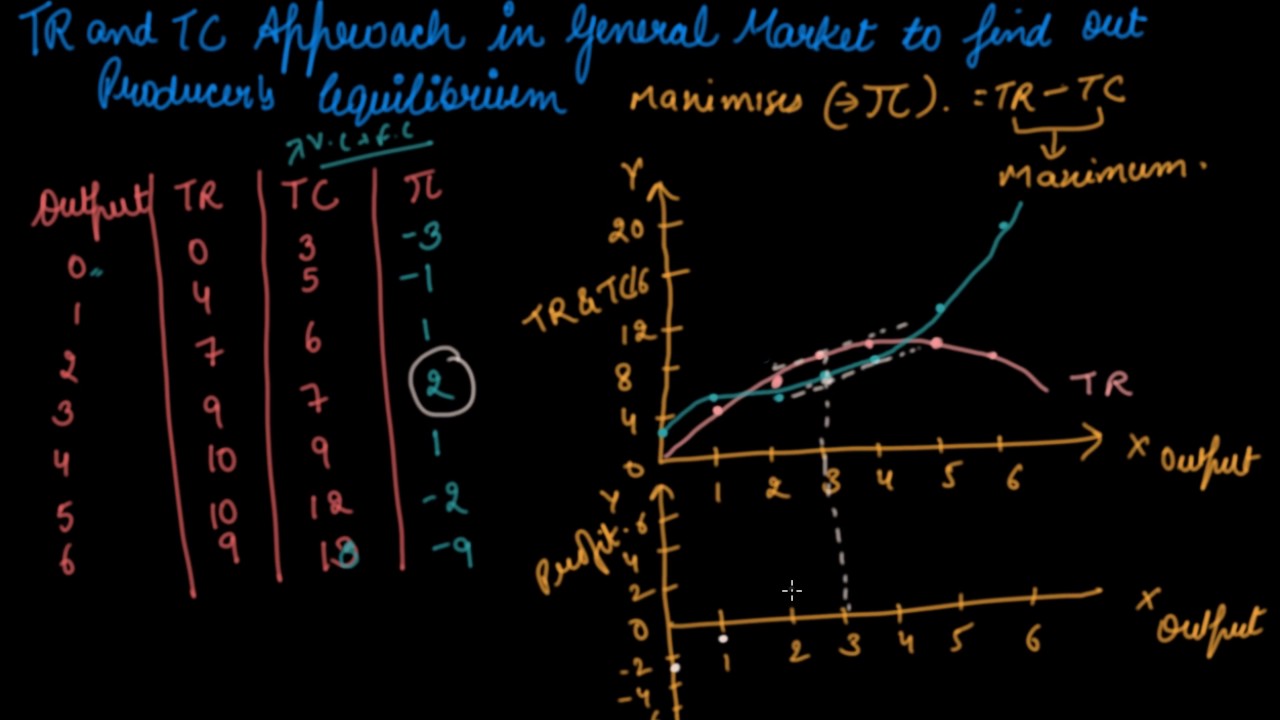 TR and TC Approach in General Market to find out
Producer's Equilibrium Maximises (→π). = TR − TC
Maximum.
V.C + F.C
Output TR TC π
0 0 3 -3
1 4 5 -1
2 7 6 1
3 9 7 2
4 10 9 1
5 10 12 -2
6 9 18 -9
Y
20
TR & TC 16
12
8
4
0
TR
1 2 3 4 5 6
X Output
Y
Profit
6
4
2
0
-2
-4
1 2 3 4 5 6
X Output